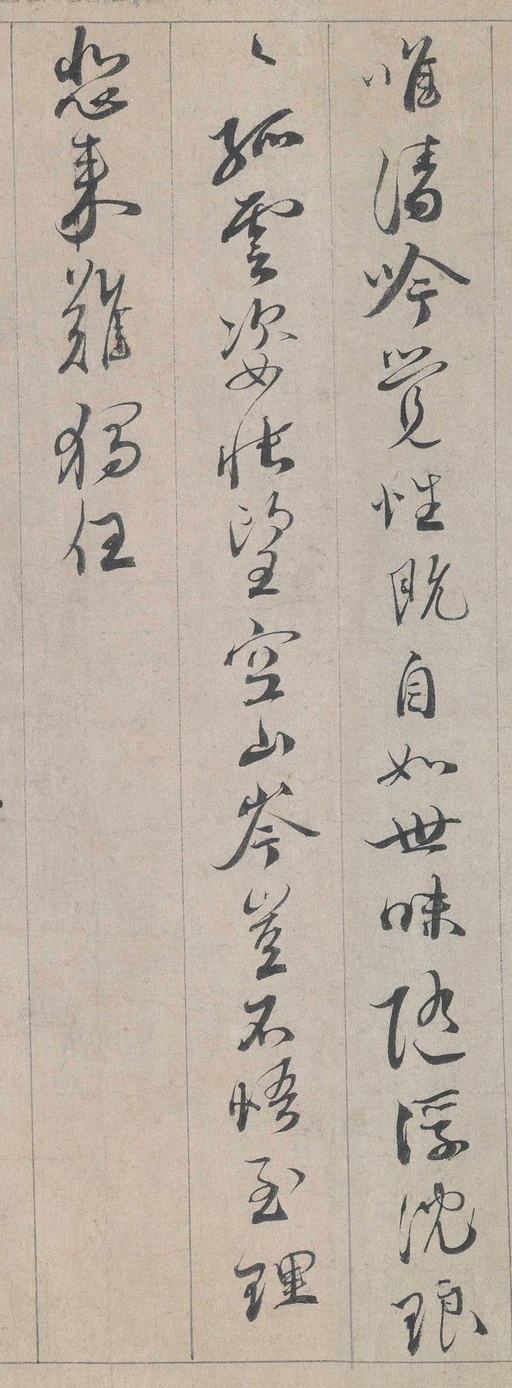 唯清吟覚性既自如世味随浮沈琅
〻孤雲姿悵望空山岑豈不悟至理
悲来難獨任